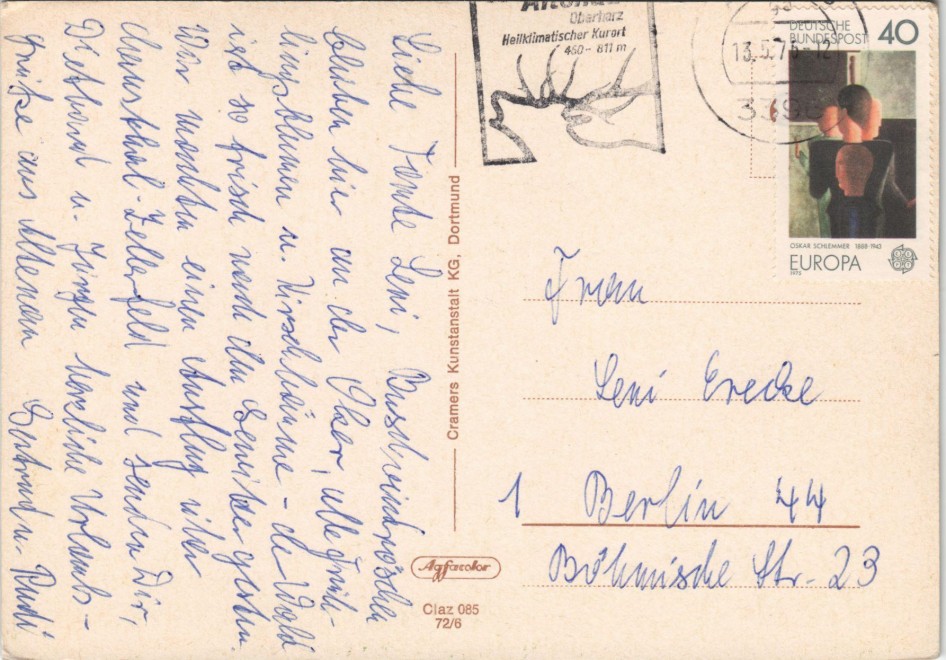 Liebe Tante Leni, Buschwindröschen
blühen hier an der Oker, alle Früh-
lingsblumen u. Kirschbäume - der Wald
ist so frisch nach den Gewittern gestern.
Wir machten einen Ausflug über
Clausthal-Zellerfeld und senden Dir,
Diethard u. Jürgen herzliche Urlaubs-
grüße aus Altenau Gertrud u. Rudi
Cramers Kunstanstalt KG, Dortmund
Agfacolor
Claz 085
72/6
Altenau
Oberharz
Heilklimatischer Kurort
450 - 811 m
13.5.75-12
DEUTSCHE
BUNDESPOST 40
OSKAR SCHLEMMER 1888-1943
EUROPA
1975
Frau
Leni Erecke
1 Berlin 44
Böhmische Str. 23